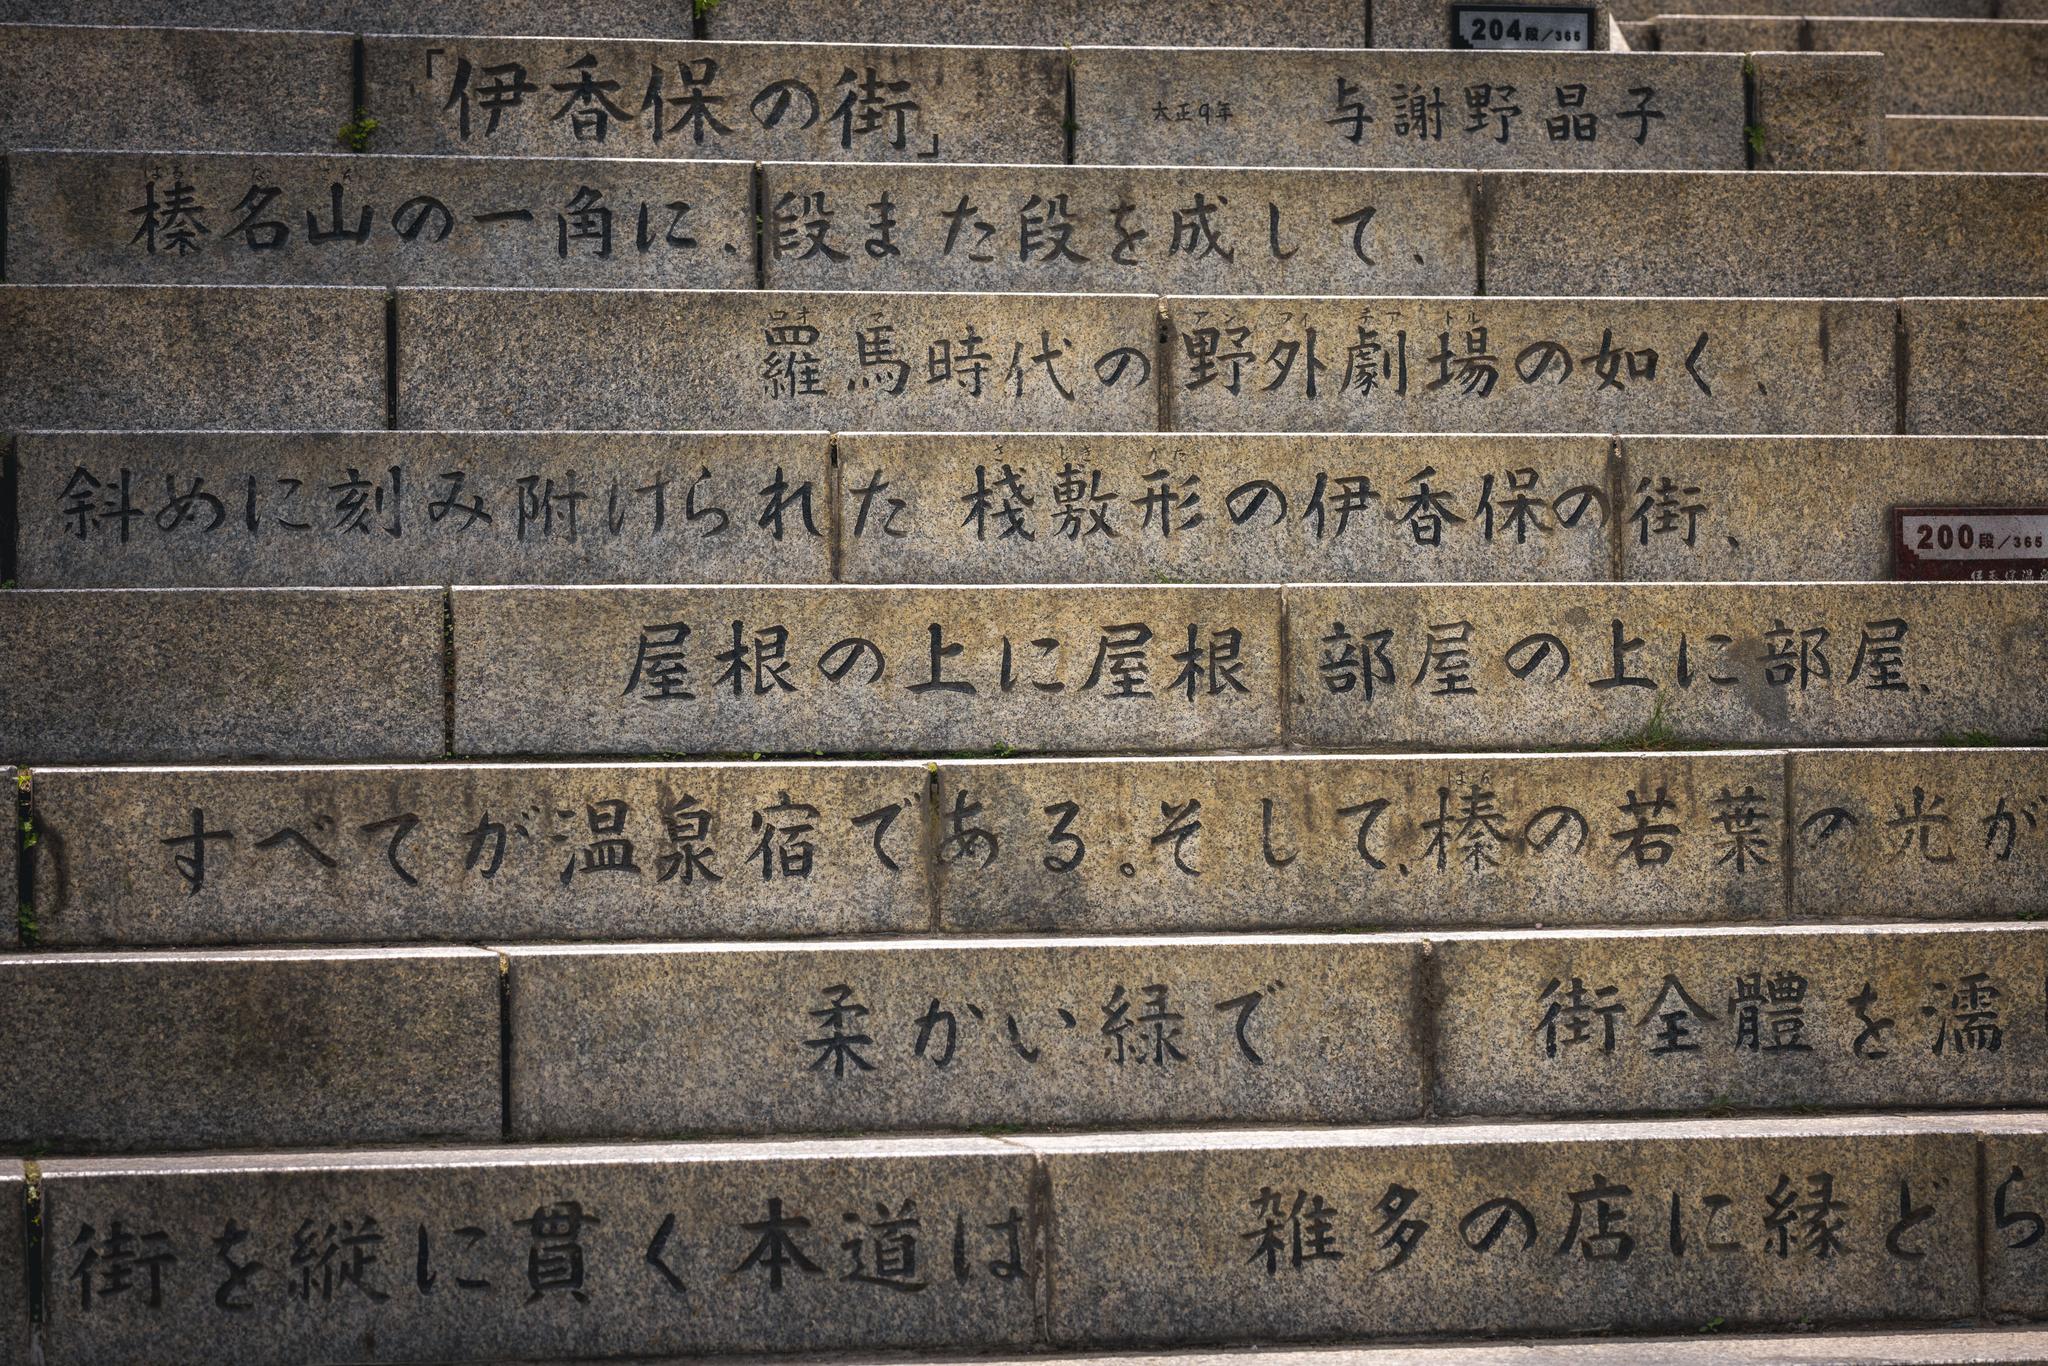 204段/365
「伊香保の街」 大正9年 与謝野晶子
はる な さん
榛名山の一角に、段また段を成して、
ロオ マ アン フィ テア トル
羅馬時代の野外劇場の如く、
さ じき がた
斜めに刻み附けられた 棧敷形の伊香保の街、
200段/365
屋根の上に屋根 部屋の上に部屋、
はん
すべてが温泉宿である。そして、榛の若葉の光が
柔かい緑で 街全體を濡
街を縦に貫く本道は 雑多の店に縁どら